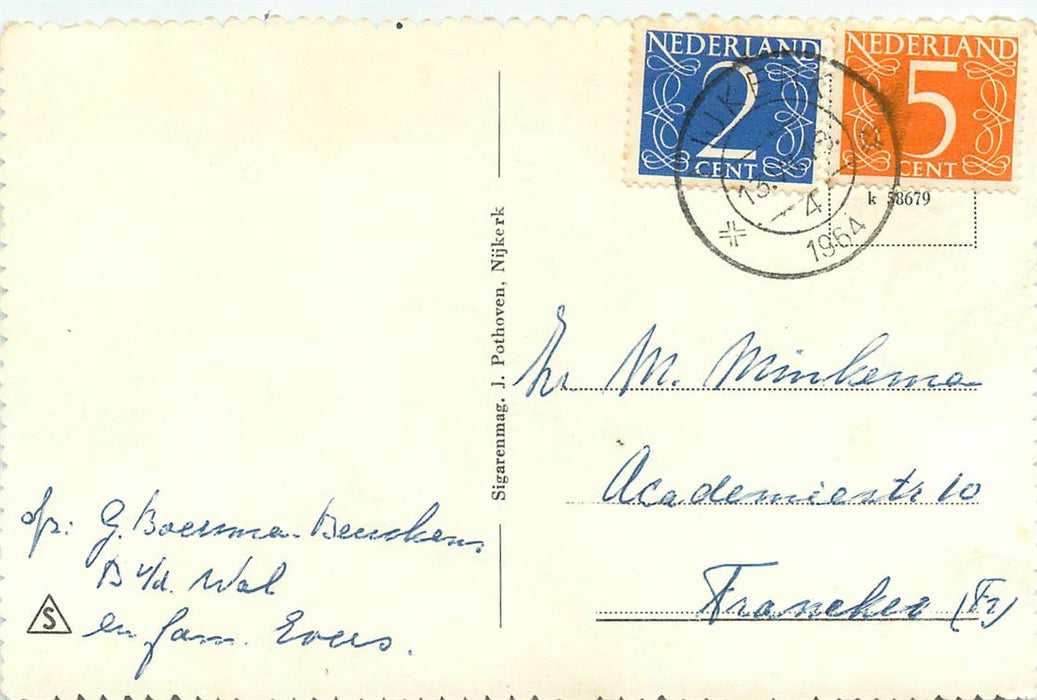 NEDERLAND
2
CENT
NEDERLAND
5
CENT
NIJKERK
13.
4
1964
k 58679
Sigarenmag. J. Pothoven, Nijkerk
M. Minkema
Academiestr 10
Franeker (Fr)
afz: G. Boersma-
B v/d. Wal
en fam. Evers.
S